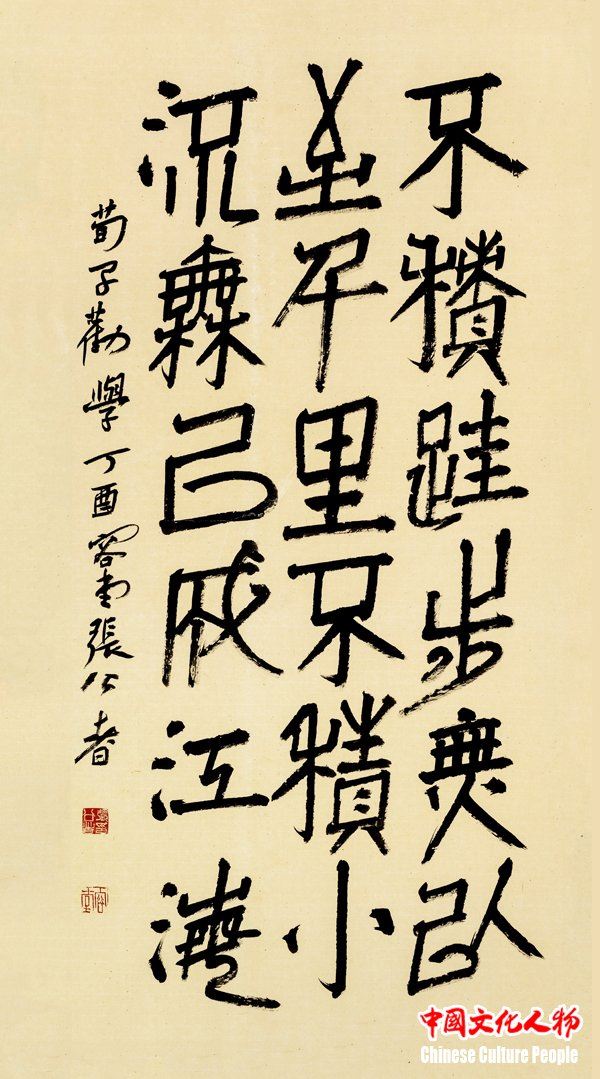 不積跬步無以
至千里不積小
流無以成江海
荀子勸學丁酉容堂張公者
中國文化人物
Chinese Culture People